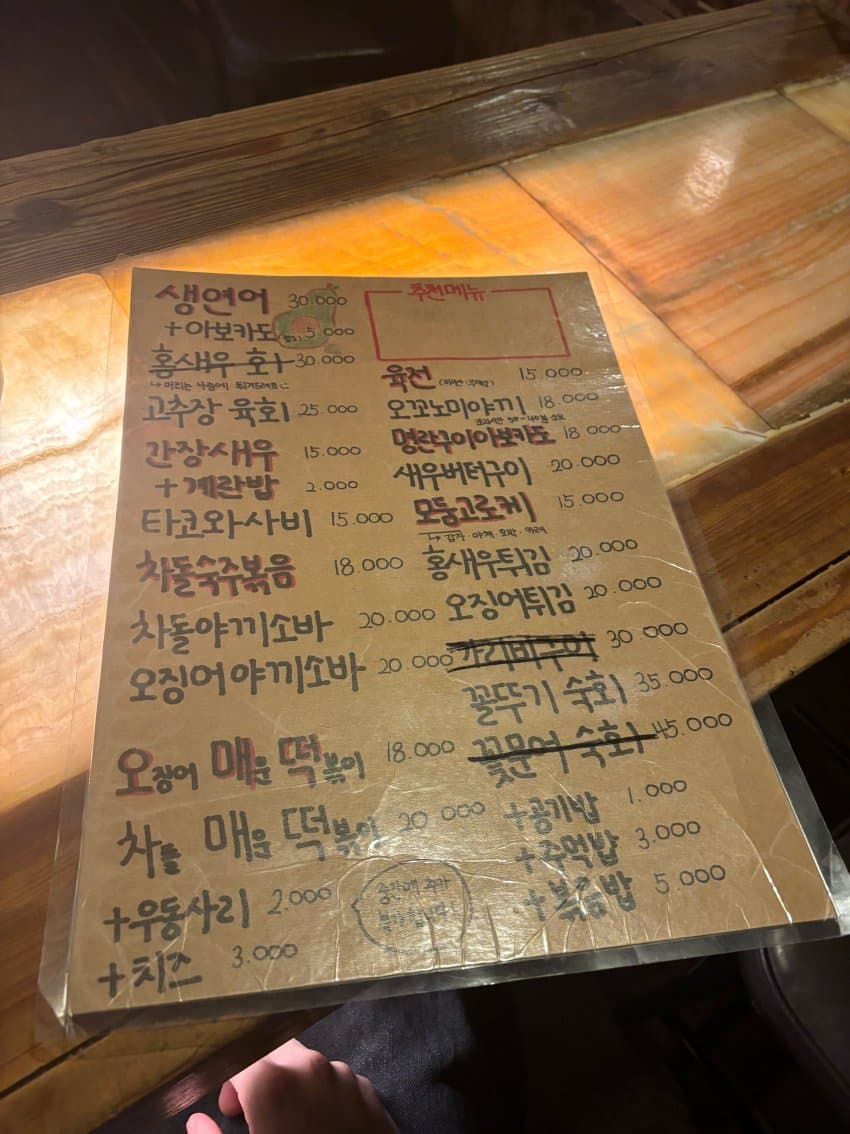 생연어 30.000
+아보카도 5.000
홍새우 회 30.000
↳머리는 나중에 튀겨드려요
고추장 육회 25.000
간장새우 15.000
+계란밥 2.000
타코와사비 15.000
차돌숙주볶음 18.000
차돌야끼소바 20.000
오징어야끼소바 20.000
오징어 매운 떡볶이 18.000
차돌 매운 떡볶이 20.000
+우동사리 2.000
+치즈 3.000
중간에 추가
불가합니다!
추천메뉴
육전 15.000
오꼬노미야끼 18.000
조리시간 30-40분 소요
명란구이아보카도 18.000
새우버터구이 20.000
모듬고로케 15.000
↳감자 야채 호박 카레
홍새우튀김 20.000
오징어튀김 20.000
가리비구이 30.000
꼴뚜기 숙회 35.000
꽃문어 숙회 45.000
+공기밥 1.000
+주먹밥 3.000
+볶음밥 5.000